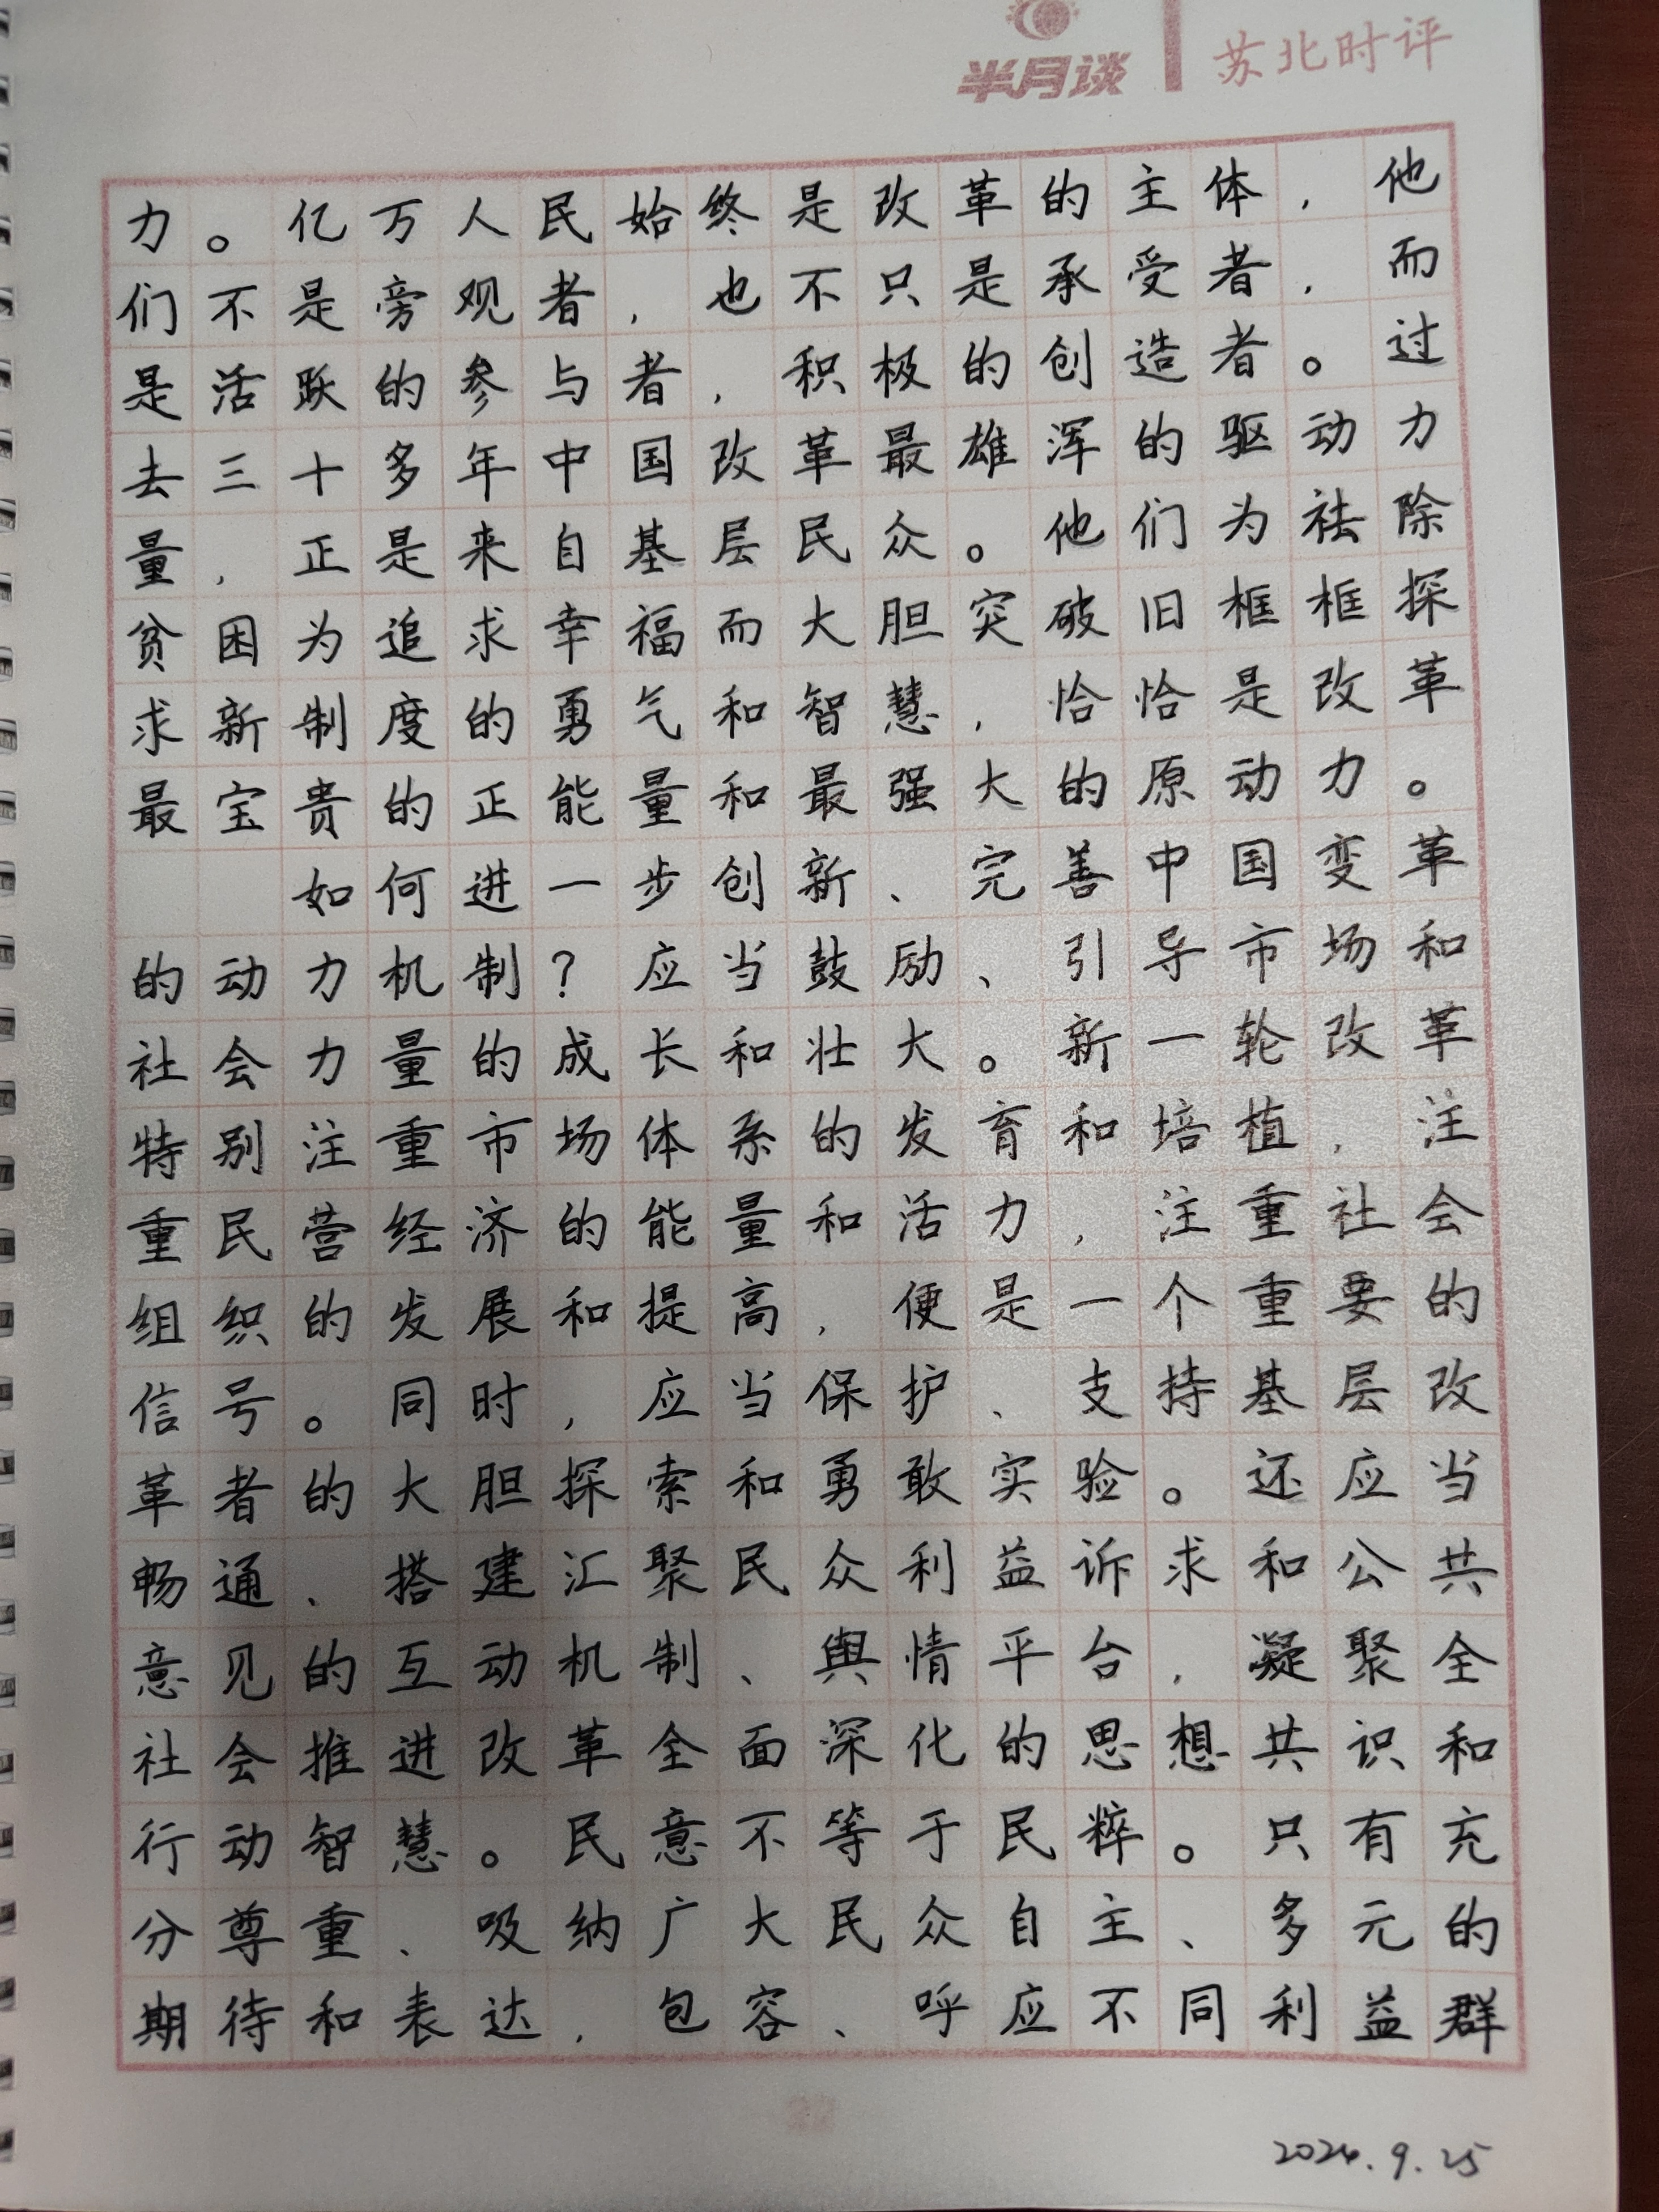 半月谈 苏北时评
力。亿万人民始终是改革的主体,他
们不是旁观者,也不只是承受者,而
是活跃的参与者,积极的创造者。过
去三十多年中国改革最雄浑的驱动力
量,正是来自基层民众。他们为祛除
贫困为追求幸福而大胆突破旧框框探
求新制度的勇气和智慧,恰恰是改革
最宝贵的正能量和最强大的原动力。
如何进一步创新、完善中国变革
的动力机制?应当鼓励、引导市场和
社会力量的成长和壮大。新一轮改革
特别注重市场体系的发育和培植,注
重民营经济的能量和活力,注重社会
组织的发展和提高,便是一个重要的
信号。同时,应当保护、支持基层改
革者的大胆探索和勇敢实验。还应当
畅通、搭建汇聚民众利益诉求和公共
意见的互动机制、舆情平台,凝聚全
社会推进改革全面深化的思想共识和
行动智慧。民意不等于民粹。只有充
分尊重、吸纳广大民众自主、多元的
期待和表达,包容、呼应不同利益群
2024.9.25